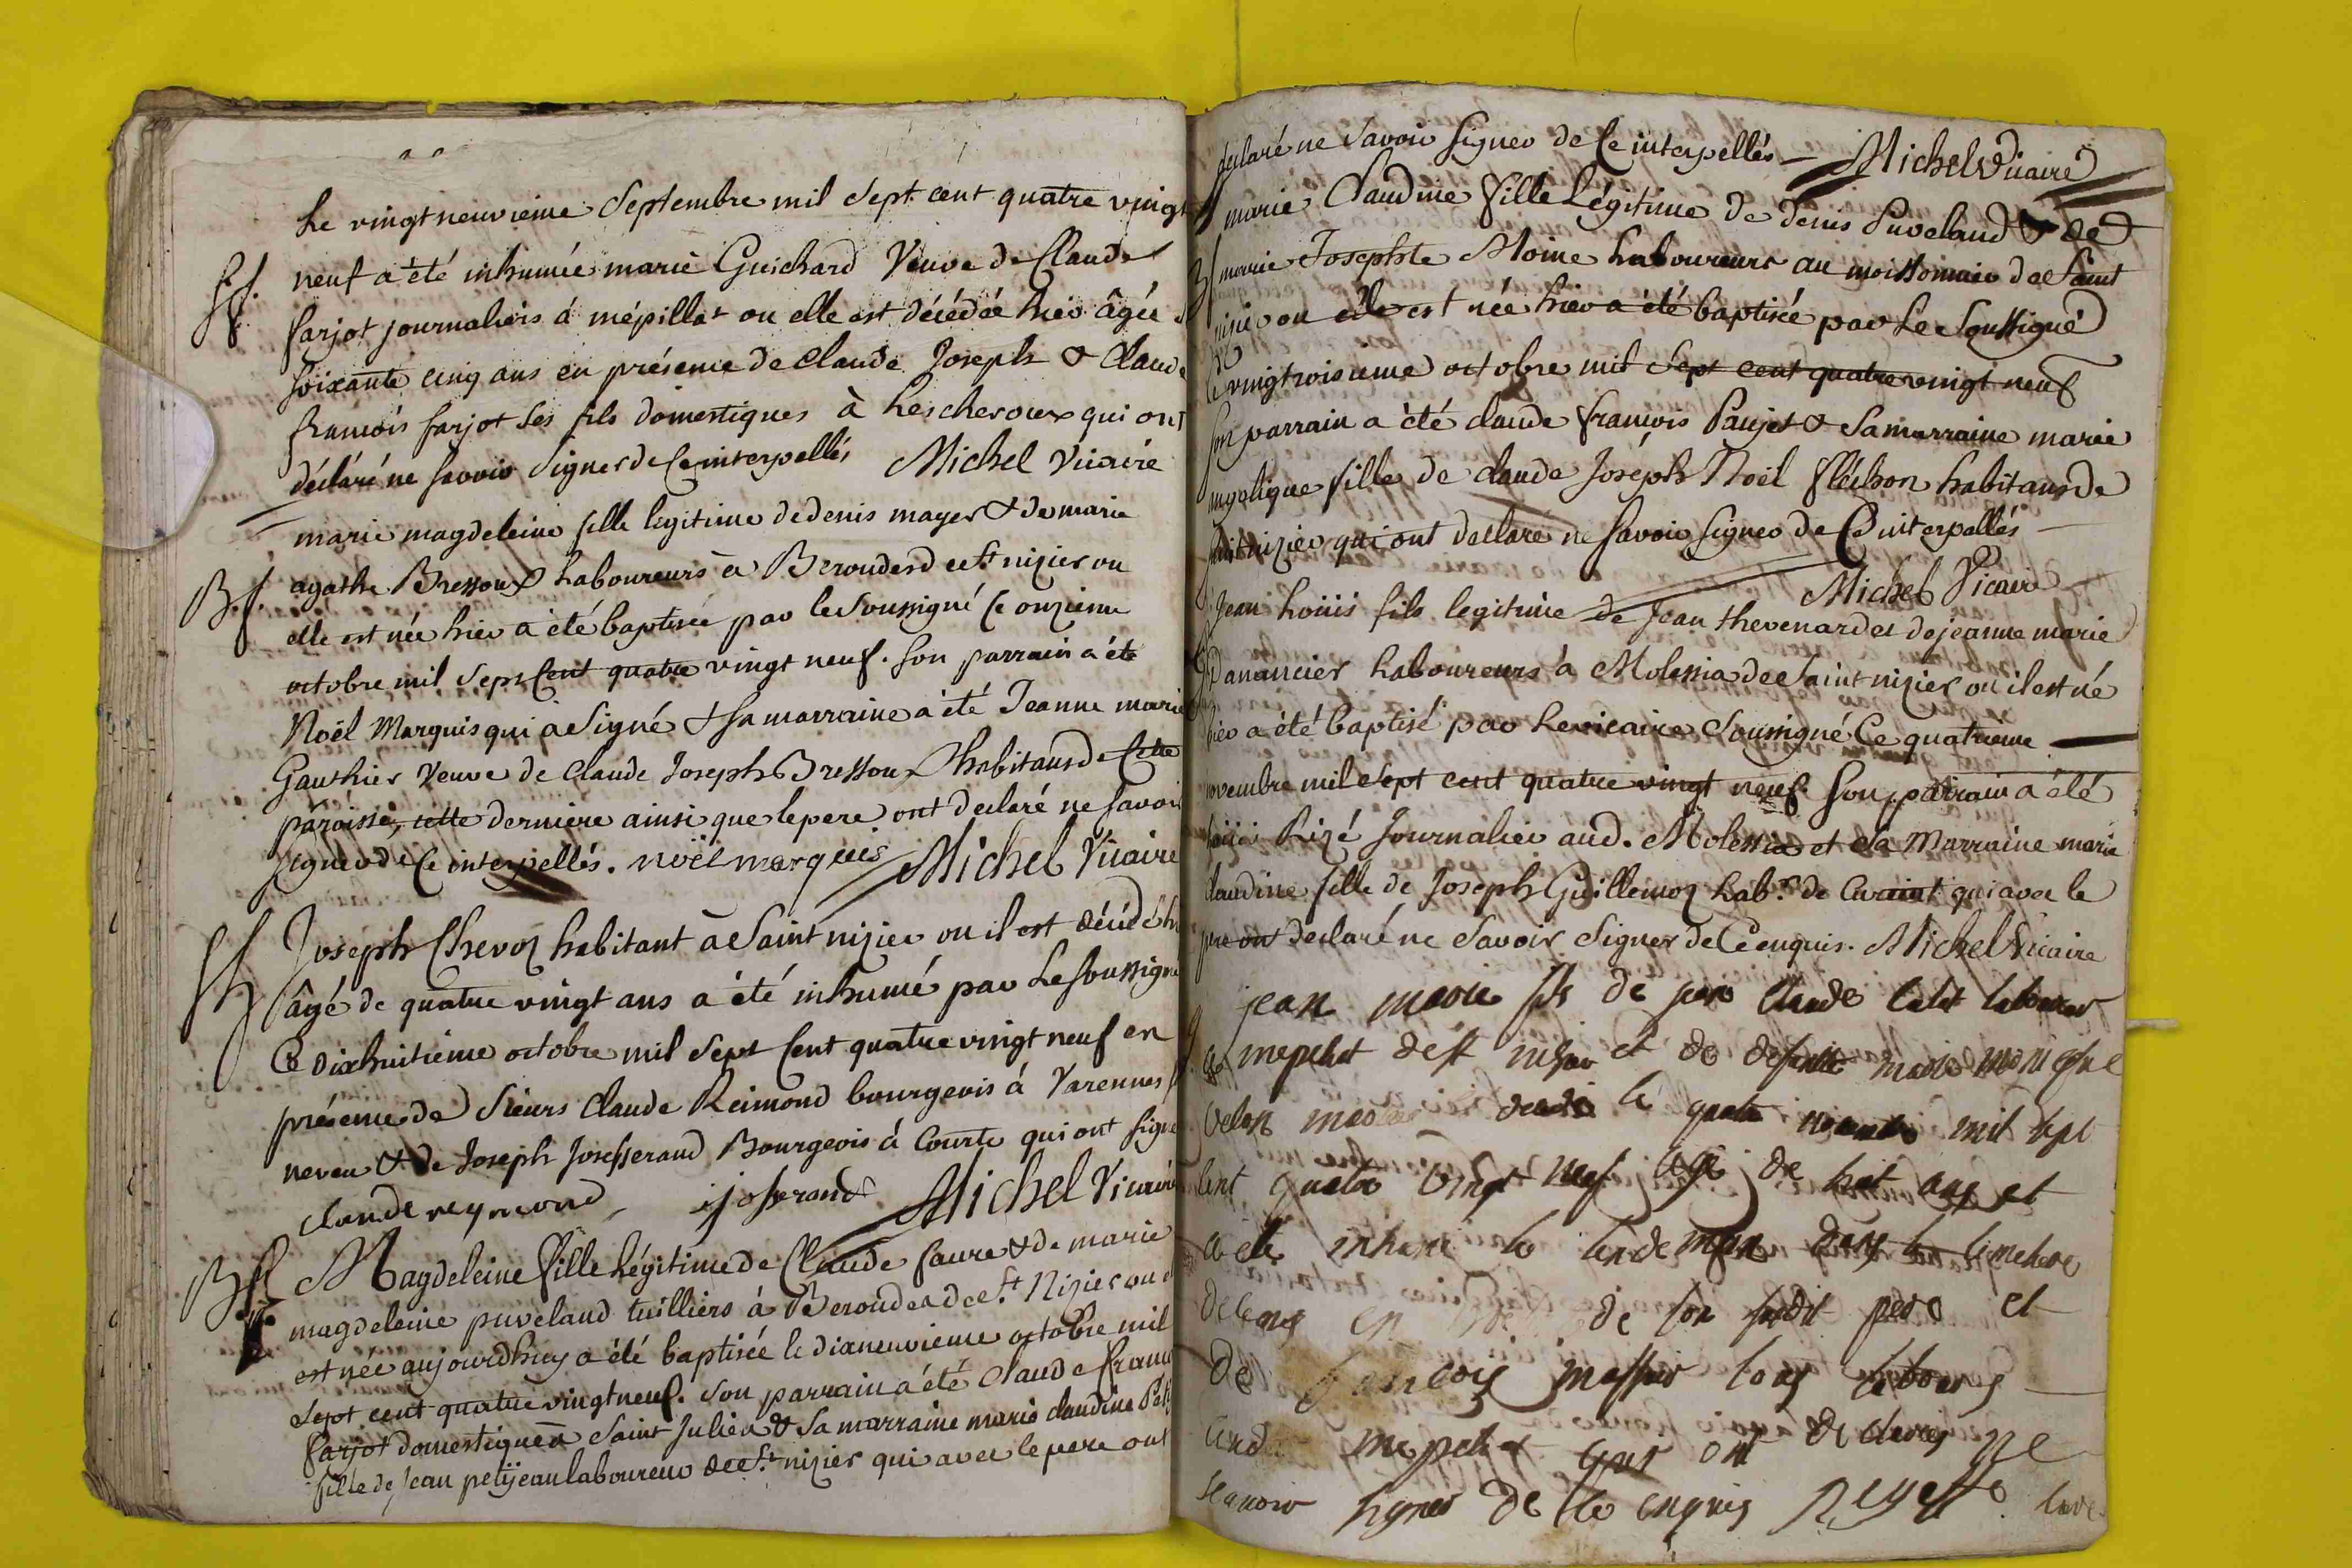 Le vingtneuvieme Septembre mil Sept cent quatre vingt
S.f. neuf a été inhumée marie Guichard Veuve de Claude
farjot journaliers á mépillat ou elle est décédée hier âgée
soixante cinq ans en présence de Claude Joseph & Claude
francois farjot ses fils domestiques à Lescheroux qui ont
déclaré ne savoir signer de Ce interpellés Michel Vicaire
marie magdeleine fille legitime de denis mayer & de marie
B.f. agathe Bressoux Laboureurs à Berouder de St nizier ou
elle est née hier a été baptisée par le Soussigné Ce onzieme
octobre mil Sept Cent quatre vingt neuf. Son parrain a été
Noël Marquis qui a Signé & Sa marraine a été Jeanne marie
Gauthier Veuve de Claude Joseph Bressoux habitans de Cette
paroisse, cette derniere ainsi que le pere ont declaré ne Savoir
signer de Ce interpellés. noël marquis Michel Vicaire
Joseph Chevoz habitant à Saint nizier ou il est décédé h
âgé de quatre vingt ans a été inhumé par Le soussigné
Ce dixhuitieme octobre mil Sept Cent quatre vingt neuf en
présence de Sieurs Claude Reimond bourgeois á Varennes
neveu & de Joseph Josserand Bourgeois á Courte qui ont signé
claude reymond j josserand Michel Vicaire
B.f. Magdeleine fille Légitime de Claude faure & de marie
magdeleine puveland tuilliers á Berouder de St Nizier ou
est née aujourdhuy a été baptisée le dixneuvieme octobre mil
Sept cent quatre vingt neuf. Son parrain a été Claude franc
farjot domestique à Saint Julien & Sa marraine marie claudine Pet
fille de Jean petitjean laboureur de St nizier qui avec le pere ont
declaré ne Savoir Signer de Ce interpellés Michel Vicaire
marie Claudine fille Légitime de denis Puveland & de
marie Josephte Moine Laboureurs au moissonnier de Saint
nizier ou elle est née hier a été baptisée par Le Soussigné
Ce vingtroisieme octobre mil Sept cent quatre vingt neuf
Son parrain a été claude francois Paujet & Sa marraine marie
angelique fille de claude Joseph Noël fléchon habitans de
saint nizier qui ont declaré ne Savoir signer de Ce interpellés
Michel Vicaire
Jean Loüis fils legitime de Jean thevenard et de jeanne marie
Danancier Laboureurs à Molessia de Saint nizier ou il est né
hier a été baptisé par Le vicaire Soussigné Ce quatrieme
novembre mil Sept cent quatre vingt neuf. Son parrain a été
Rizé Journalier aud. Molessia et Sa Marraine marie
claudine fille de Joseph Guillemoz hab. de Curciat qui avec le
pere ont declaré ne Savoir Signer de Ce enquis. Michel Vicaire
jean marie fils de jean claude laboureur
a mepelat de st nisier et de defunte marie monique
velon decede le quatre novembre mil sept
cent quatre vingt neuf agé de huit ans et
a été inhumé le lendemain dans le cimetiere
de ceans en de son susdit pere et
de francois tous laboureurs
aud mepelat qui ont declarés ne
scavoir signer de ce enquis